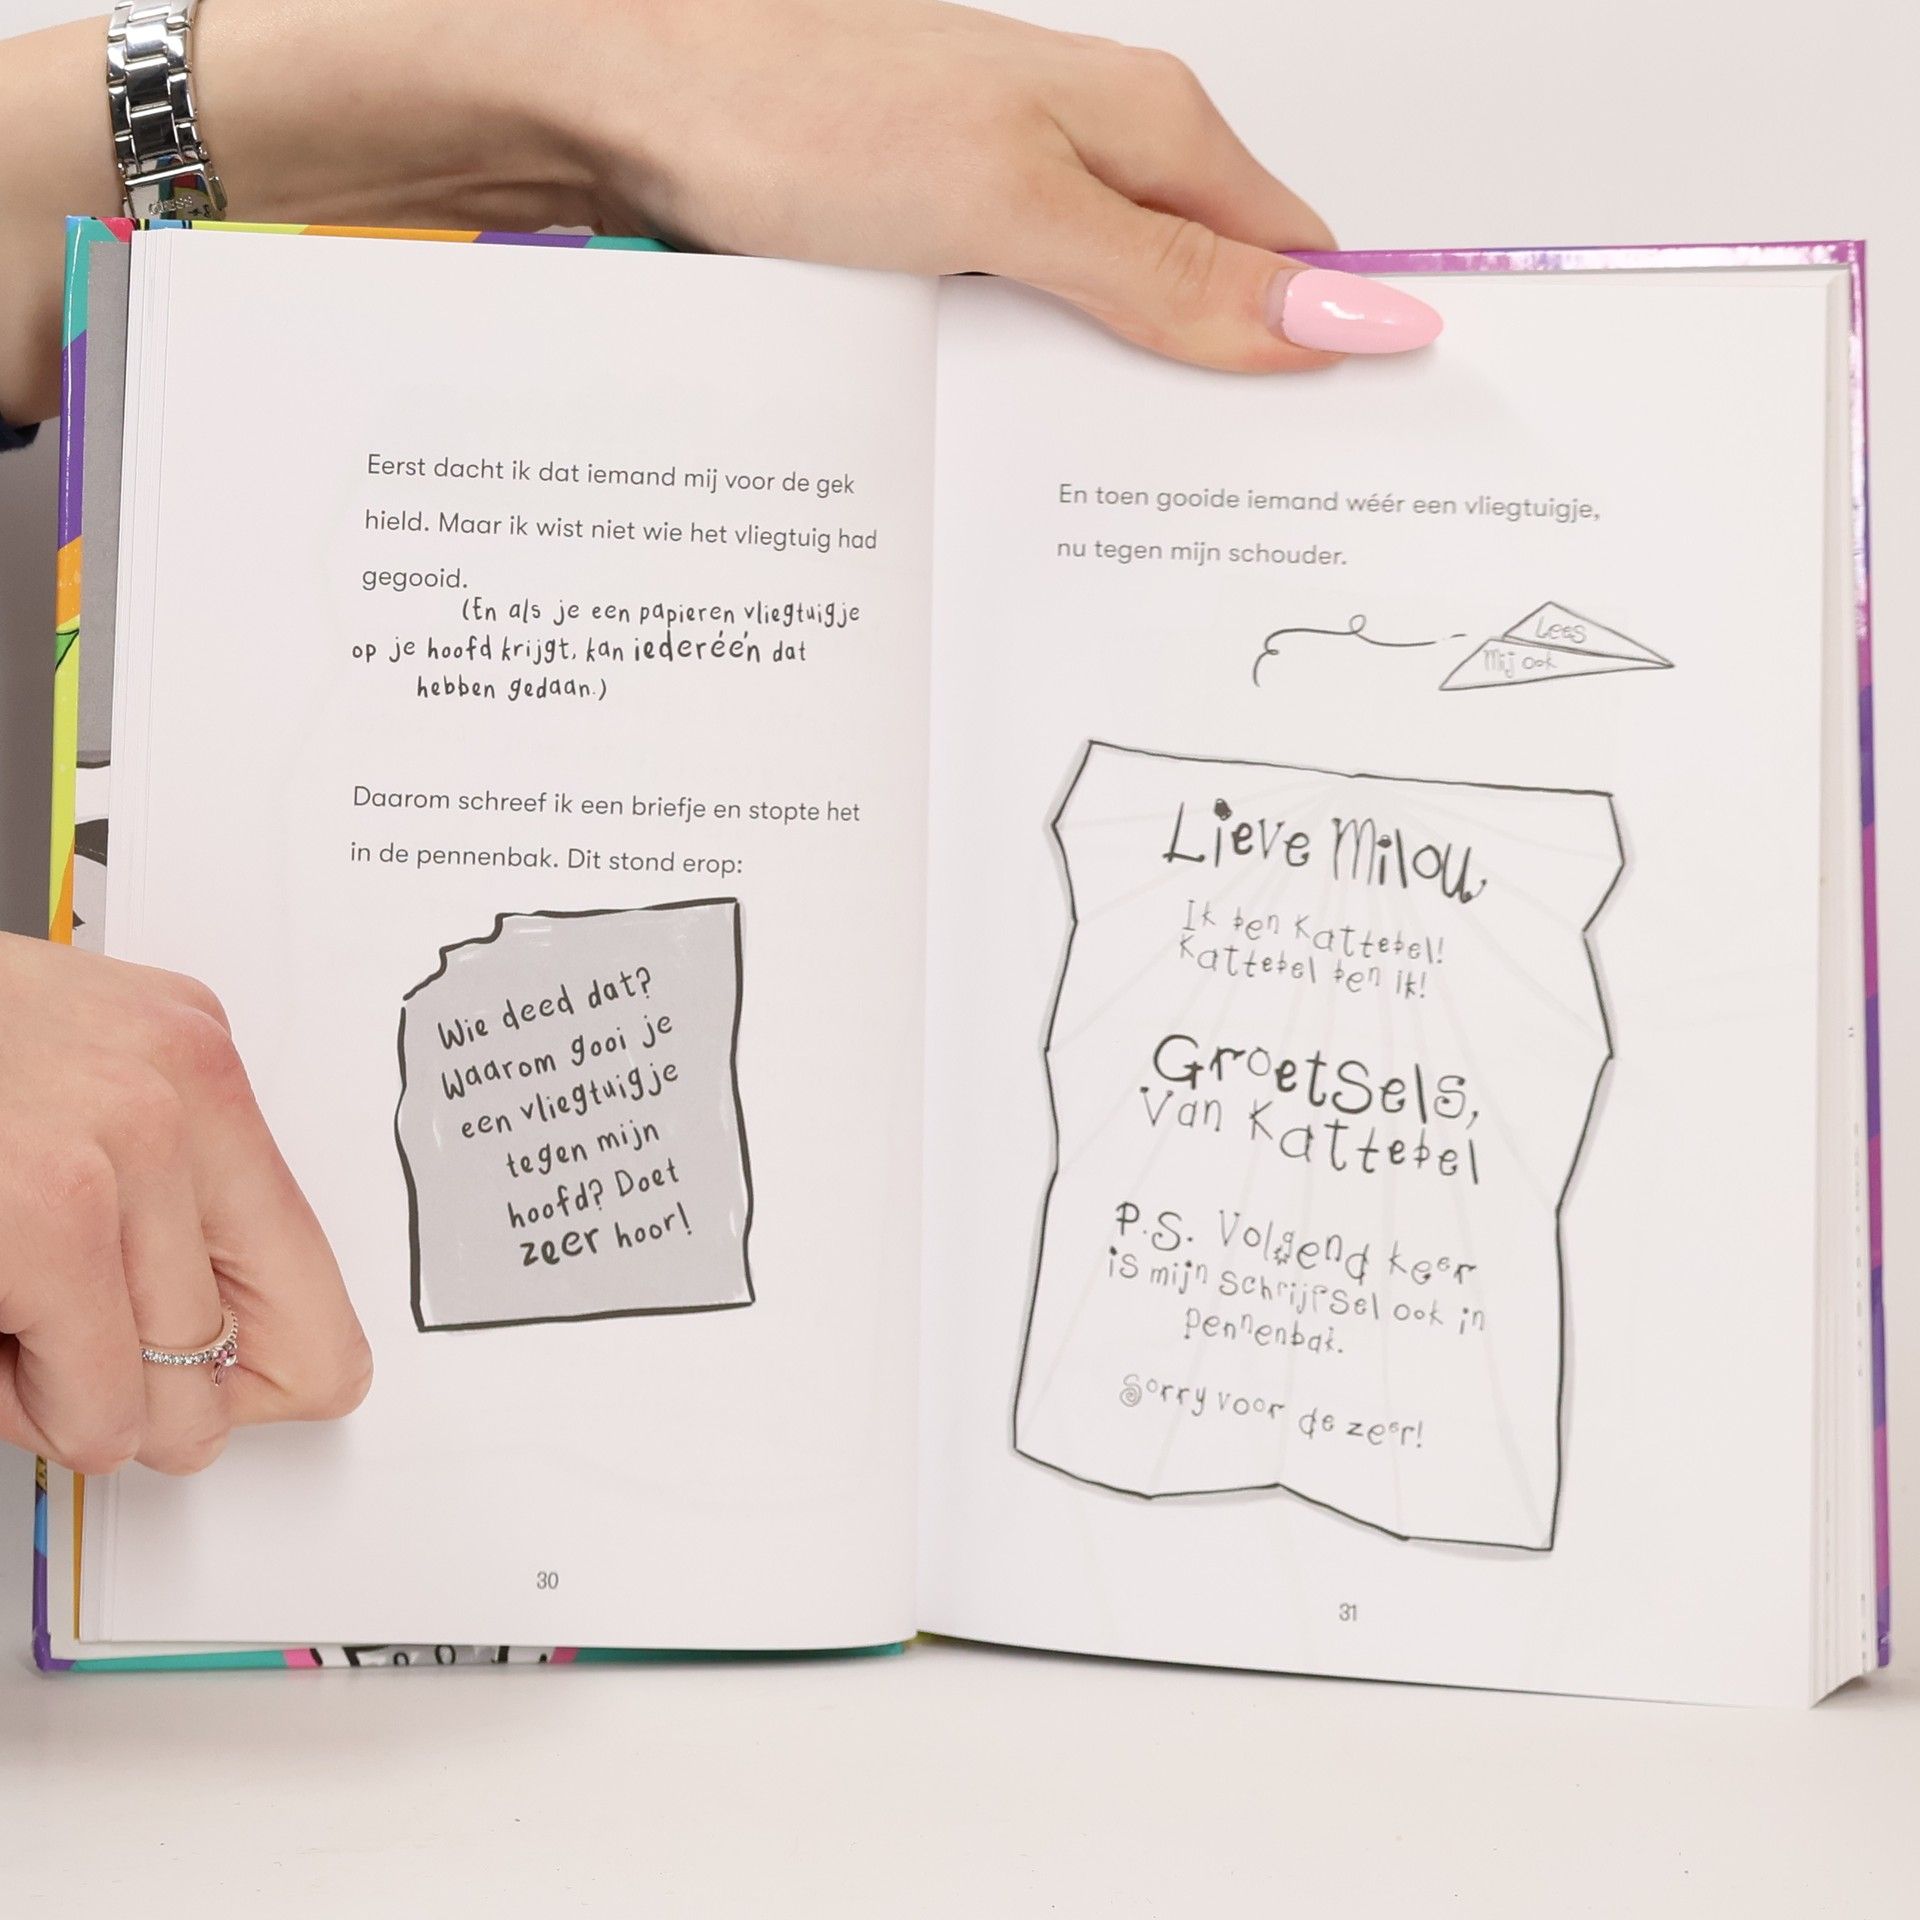 Eerst dacht ik dat iemand mij voor de gek
hield. Maar ik wist niet wie het vliegtuig had
gegooid.
(En als je een papieren vliegtuigje
op je hoofd krijgt, kan iederéén dat
hebben gedaan.)
Daarom schreef ik een briefje en stopte het
in de pennenbak. Dit stond erop:
Wie deed dat?
Waarom gooi je
een vliegtuigje
tegen mijn
hoofd? Doet
zeer hoor!
30
En toen gooide iemand wéér een vliegtuigje,
nu tegen mijn schouder.
Lees
Mij ook
Lieve Milou
Ik ben Kattebel!
Kattebel ben ik!
Groetsels,
Van Kattebel
P.S. Volgend keer
is mijn schrijfsel ook in
pennenbak.
Sorry voor de zeer!
31